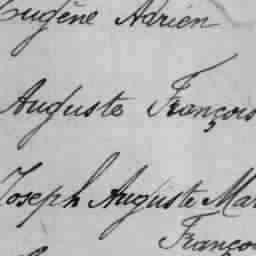 Eugène Adrien
Auguste François
Joseph Auguste Mar
Franço